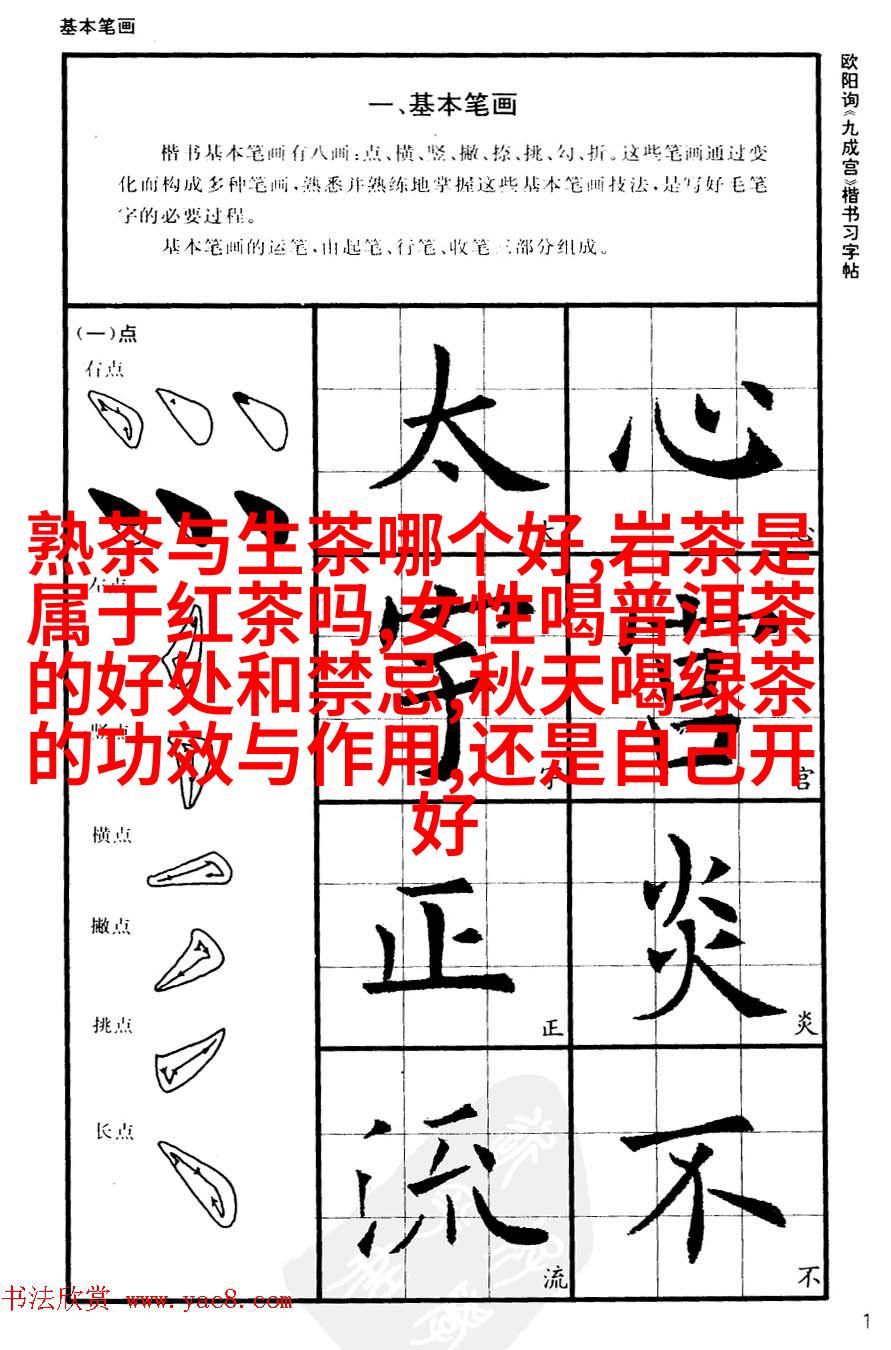 基本笔画
欧阳询《九成宫》楷书习字帖
一、基本笔画
楷书基本笔画有八画：点、横、竖、撇、捺、挑、勾、折。这些笔画通过变
化而构成多种笔画，熟悉并熟练地掌握这些基本笔画技法，是写好毛笔
字的必要过程。
基本笔画的运笔，由起笔、行笔、收笔三部分组成。
(一)点
右点
左点
竖点
横点
撇点
挑点
长点
太
太
心
心
字
字
宫
宫
正
正
炎
炎
流
流
不
不
熟茶与生茶哪个好,岩茶是
属于红茶吗,女性喝普洱茶
的好处和禁忌,秋天喝绿茶
的功效与作用,还是自己开
好
书法欣赏 www.yac8.com
1